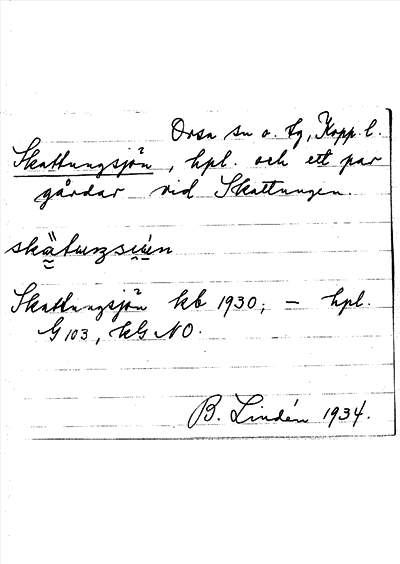 Orsa sn o. tg, Kopp. l.
Skattungsjön, hpl. och ett par
gårdar vid Skattungen.
Skattungsjön kb 1930; – hpl.
G 103, kG NO.
B. Lindén 1934.